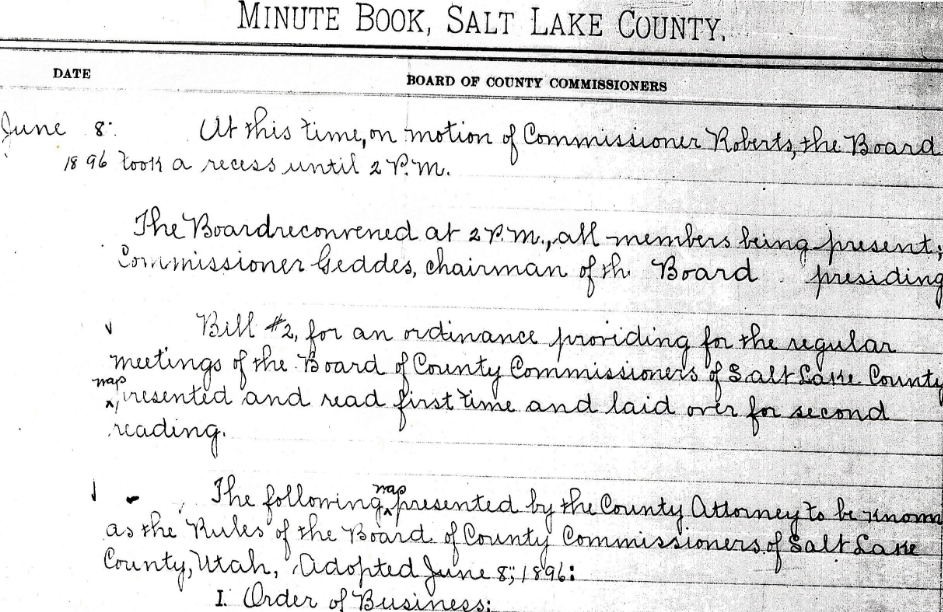 MINUTE BOOK, SALT LAKE COUNTY.
DATE BOARD OF COUNTY COMMISSIONERS
June 8. At this time, on motion of Commissioner Roberts, the Board
1896 took a recess until 2 P.M.
The Board reconvened at 2 P.M., all members being present,
Commissioner Geddes, chairman of th Board presiding
Bill #2, for an ordinance providing for the regular
meetings of the Board of County Commissioners of Salt Lake County
was presented and read first time and laid over for second
reading.
The following was presented by the County Attorney to be known
as the Rules of the Board of County Commissioners of Salt Lake
County, Utah, Adopted June 8, 1896:
I. Order of Business: